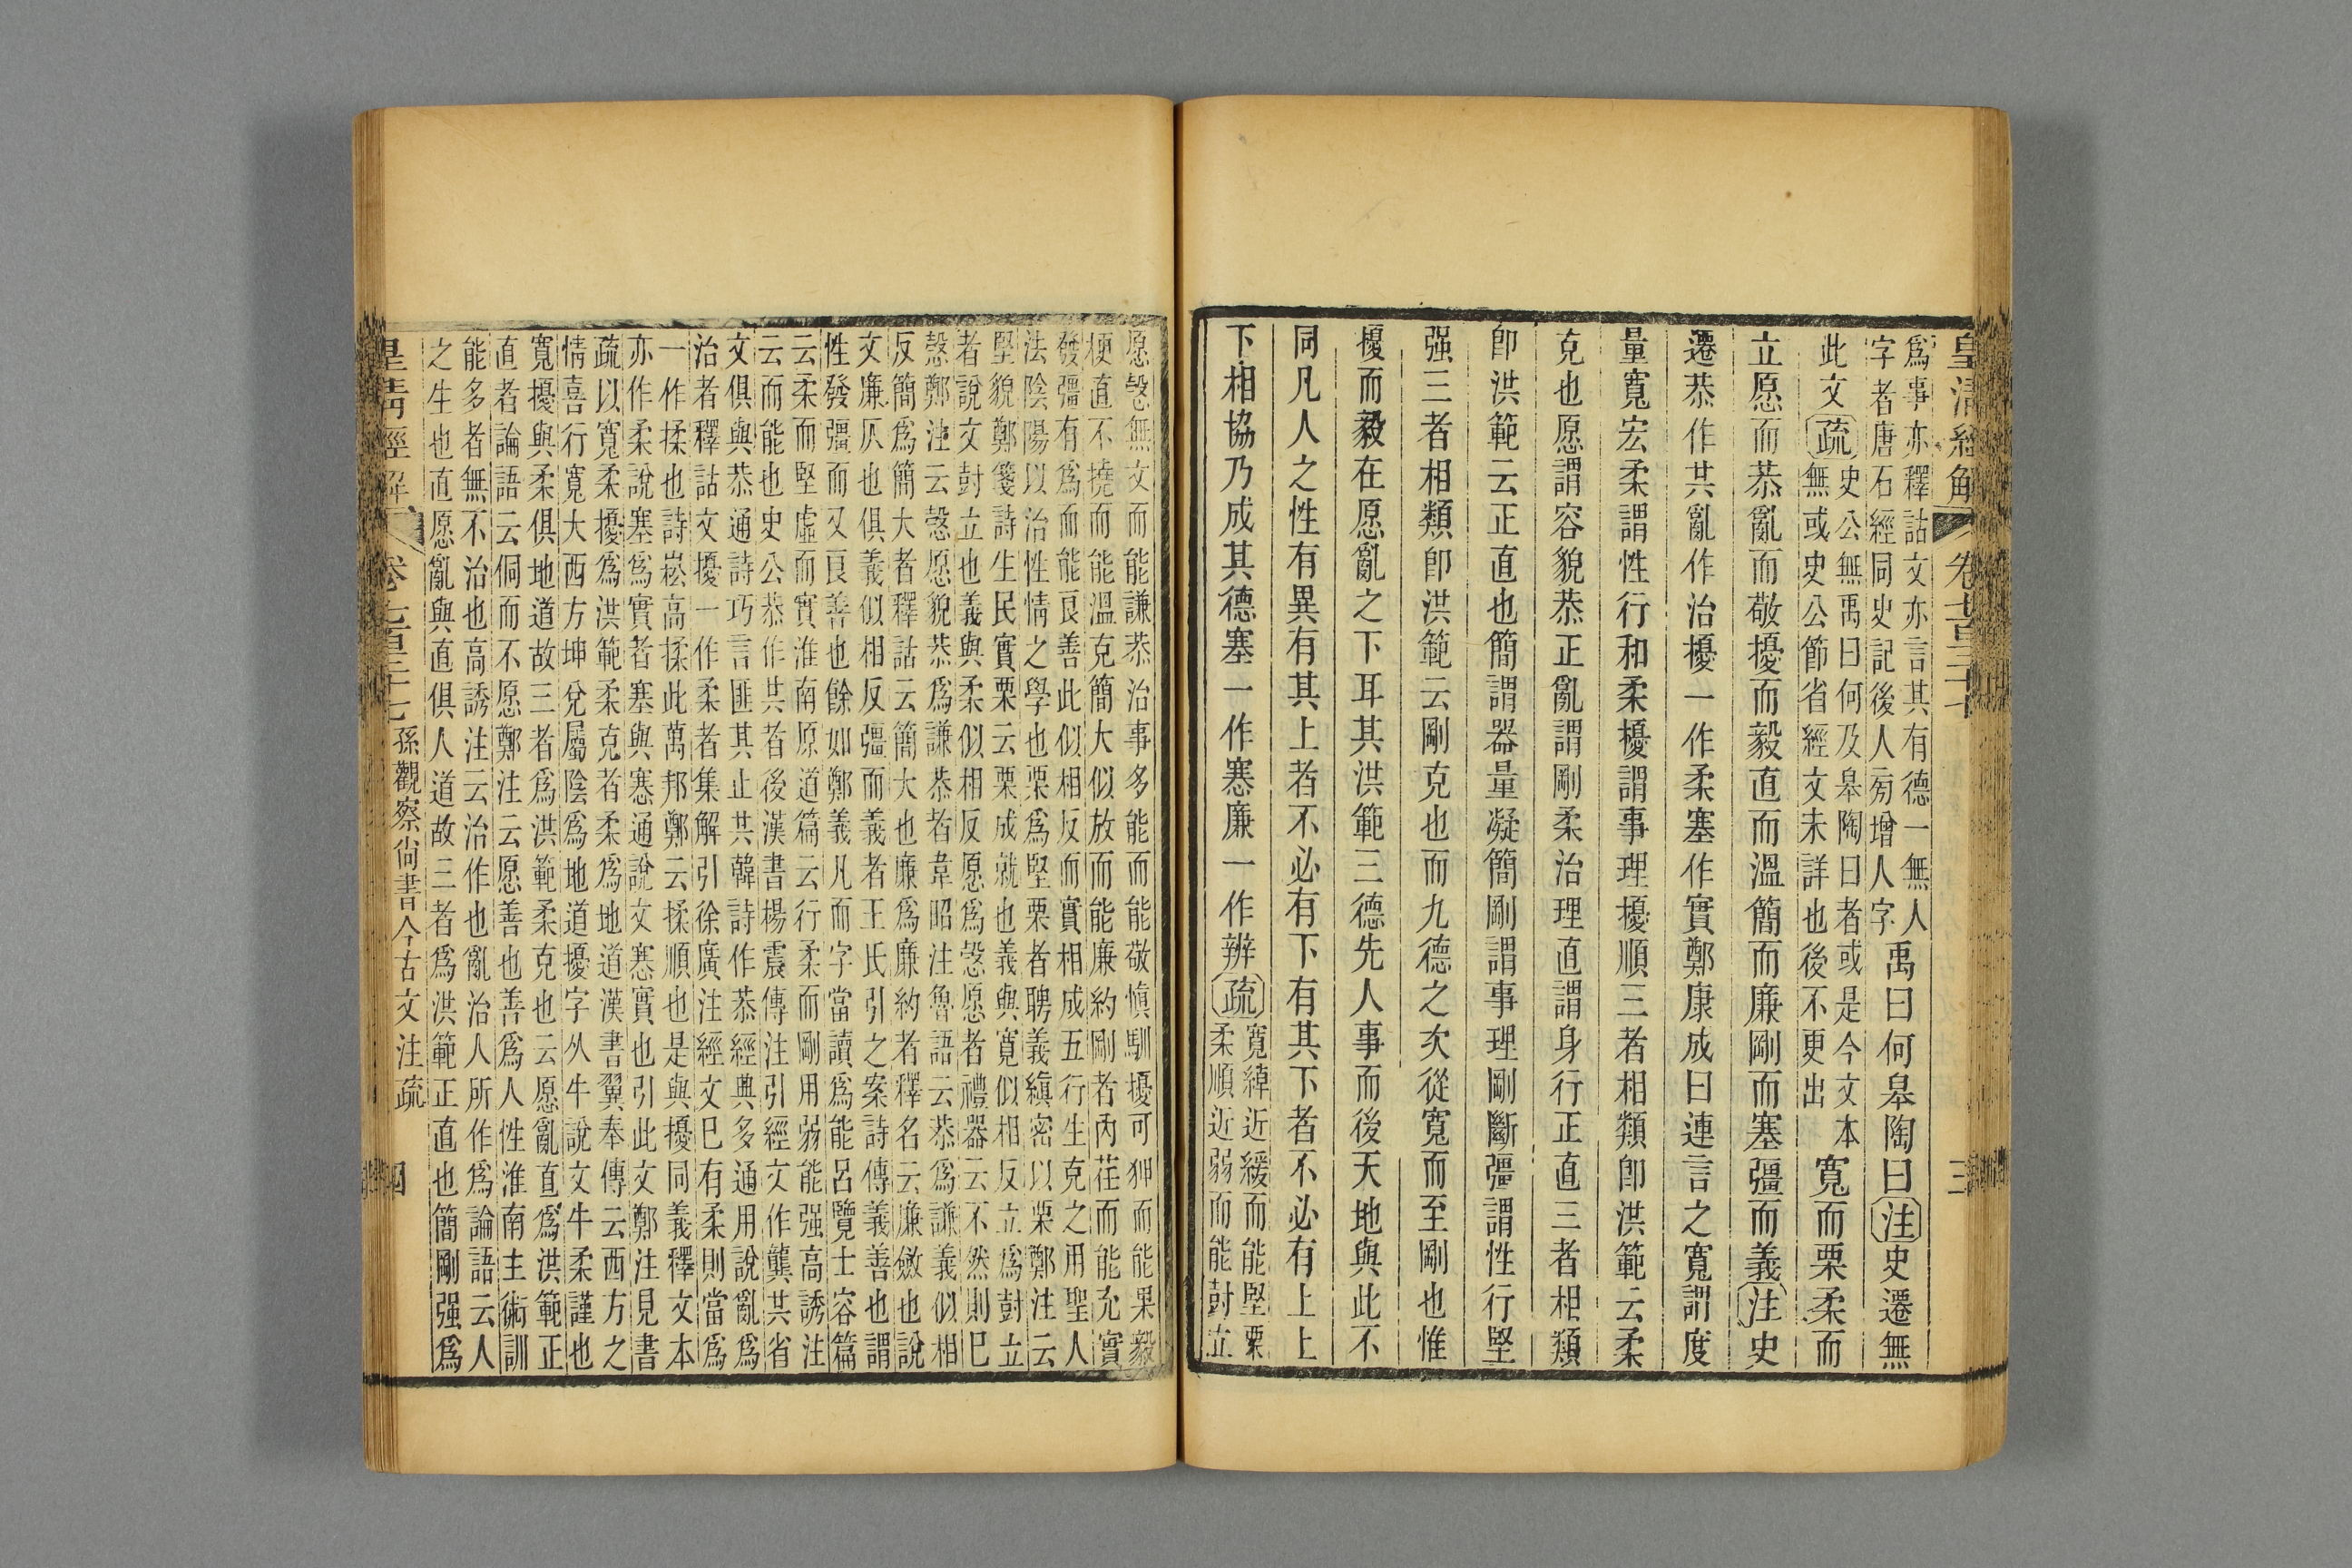 皇清經解 卷七百三十七 三
爲事亦釋詁文亦言其有德一無人
字者唐石經同史記後人㫄增人字
禹曰何皋陶曰注史遷無
此文疏
史公無禹曰何及皋陶曰者或是今文本
無或史公節省經文未詳也後不更出
寬而栗柔而
立愿而恭亂而敬擾而毅直而溫簡而廉剛而塞彊而義注史
遷恭作共亂作治擾一作柔塞作實鄭康成曰連言之寬謂度
量寬宏柔謂性行和柔擾謂事理擾順三者相類卽洪範云柔
克也愿謂容貌恭正亂謂剛柔治理直謂身行正直三者相類
卽洪範云正直也簡謂器量凝簡剛謂事理剛斷彊謂性行堅
强三者相類卽洪範云剛克也而九德之次從寬而至剛也惟
擾而毅在愿亂之下耳其洪範三德先人事而後天地與此不
同凡人之性有異有其上者不必有下有其下者不必有上上
下相協乃成其德塞一作寋廉一作辨疏
寬綽近緩而能堅栗
柔順近弱而能尌立
愿愨無文而能謙恭治事多能而能敬愼馴擾可狎而能果毅
梗直不撓而能溫克簡大似放而能廉約剛者內荏而能充實
發彊有爲而能良善此似相反而實相成五行生克之用聖人
法陰陽以治性情之學也栗爲堅栗者聘義縝密以栗鄭注云
堅貌鄭箋詩生民實栗云栗成就也義與寬似相反立爲尌立
者說文尌立也義與柔似相反愿爲愨愿者禮器云不然則巳
愨鄭注云愨愿貌恭爲謙恭者韋昭注魯語云恭爲謙義似相
反簡爲簡大者釋詁云簡大也廉爲廉約者釋名云廉斂也說
文廉仄也俱義似相反彊而義者王氏引之案詩傳義善也謂
性發彊而又良善也餘如鄭義凡而字當讀爲能呂覽士容篇
云柔而堅虛而實淮南原道篇云行柔而剛用弱能强高誘注
云而能也史公恭作共者後漢書楊震傳注引經文作龔共省
文俱與恭通詩巧言匪其止共韓詩作恭經典多通用說亂爲
治者釋詁文擾一作柔者集解引徐廣注經文巳有柔則當爲
一作揉也詩崧高揉此萬邦鄭云揉順也是與擾同義釋文本
亦作柔說塞爲實者塞與寋通說文寋實也引此文鄭注見書
疏以寬柔擾爲洪範柔克者柔爲地道漢書翼奉傳云西方之
情喜行寬大西方坤兌屬陰爲地道擾字从牛說文牛柔謹也
寬擾與柔俱地道故三者爲洪範柔克也云愿亂直爲洪範正
直者論語云侗而不愿鄭注云愿善也善爲人性淮南主術訓
能多者無不治也高誘注云治作也亂治人所作爲論語云人
之生也直愿亂與直俱人道故三者爲洪範正直也簡剛强爲
皇清經解 卷七百三十七 孫觀察尙書今古文注疏 四